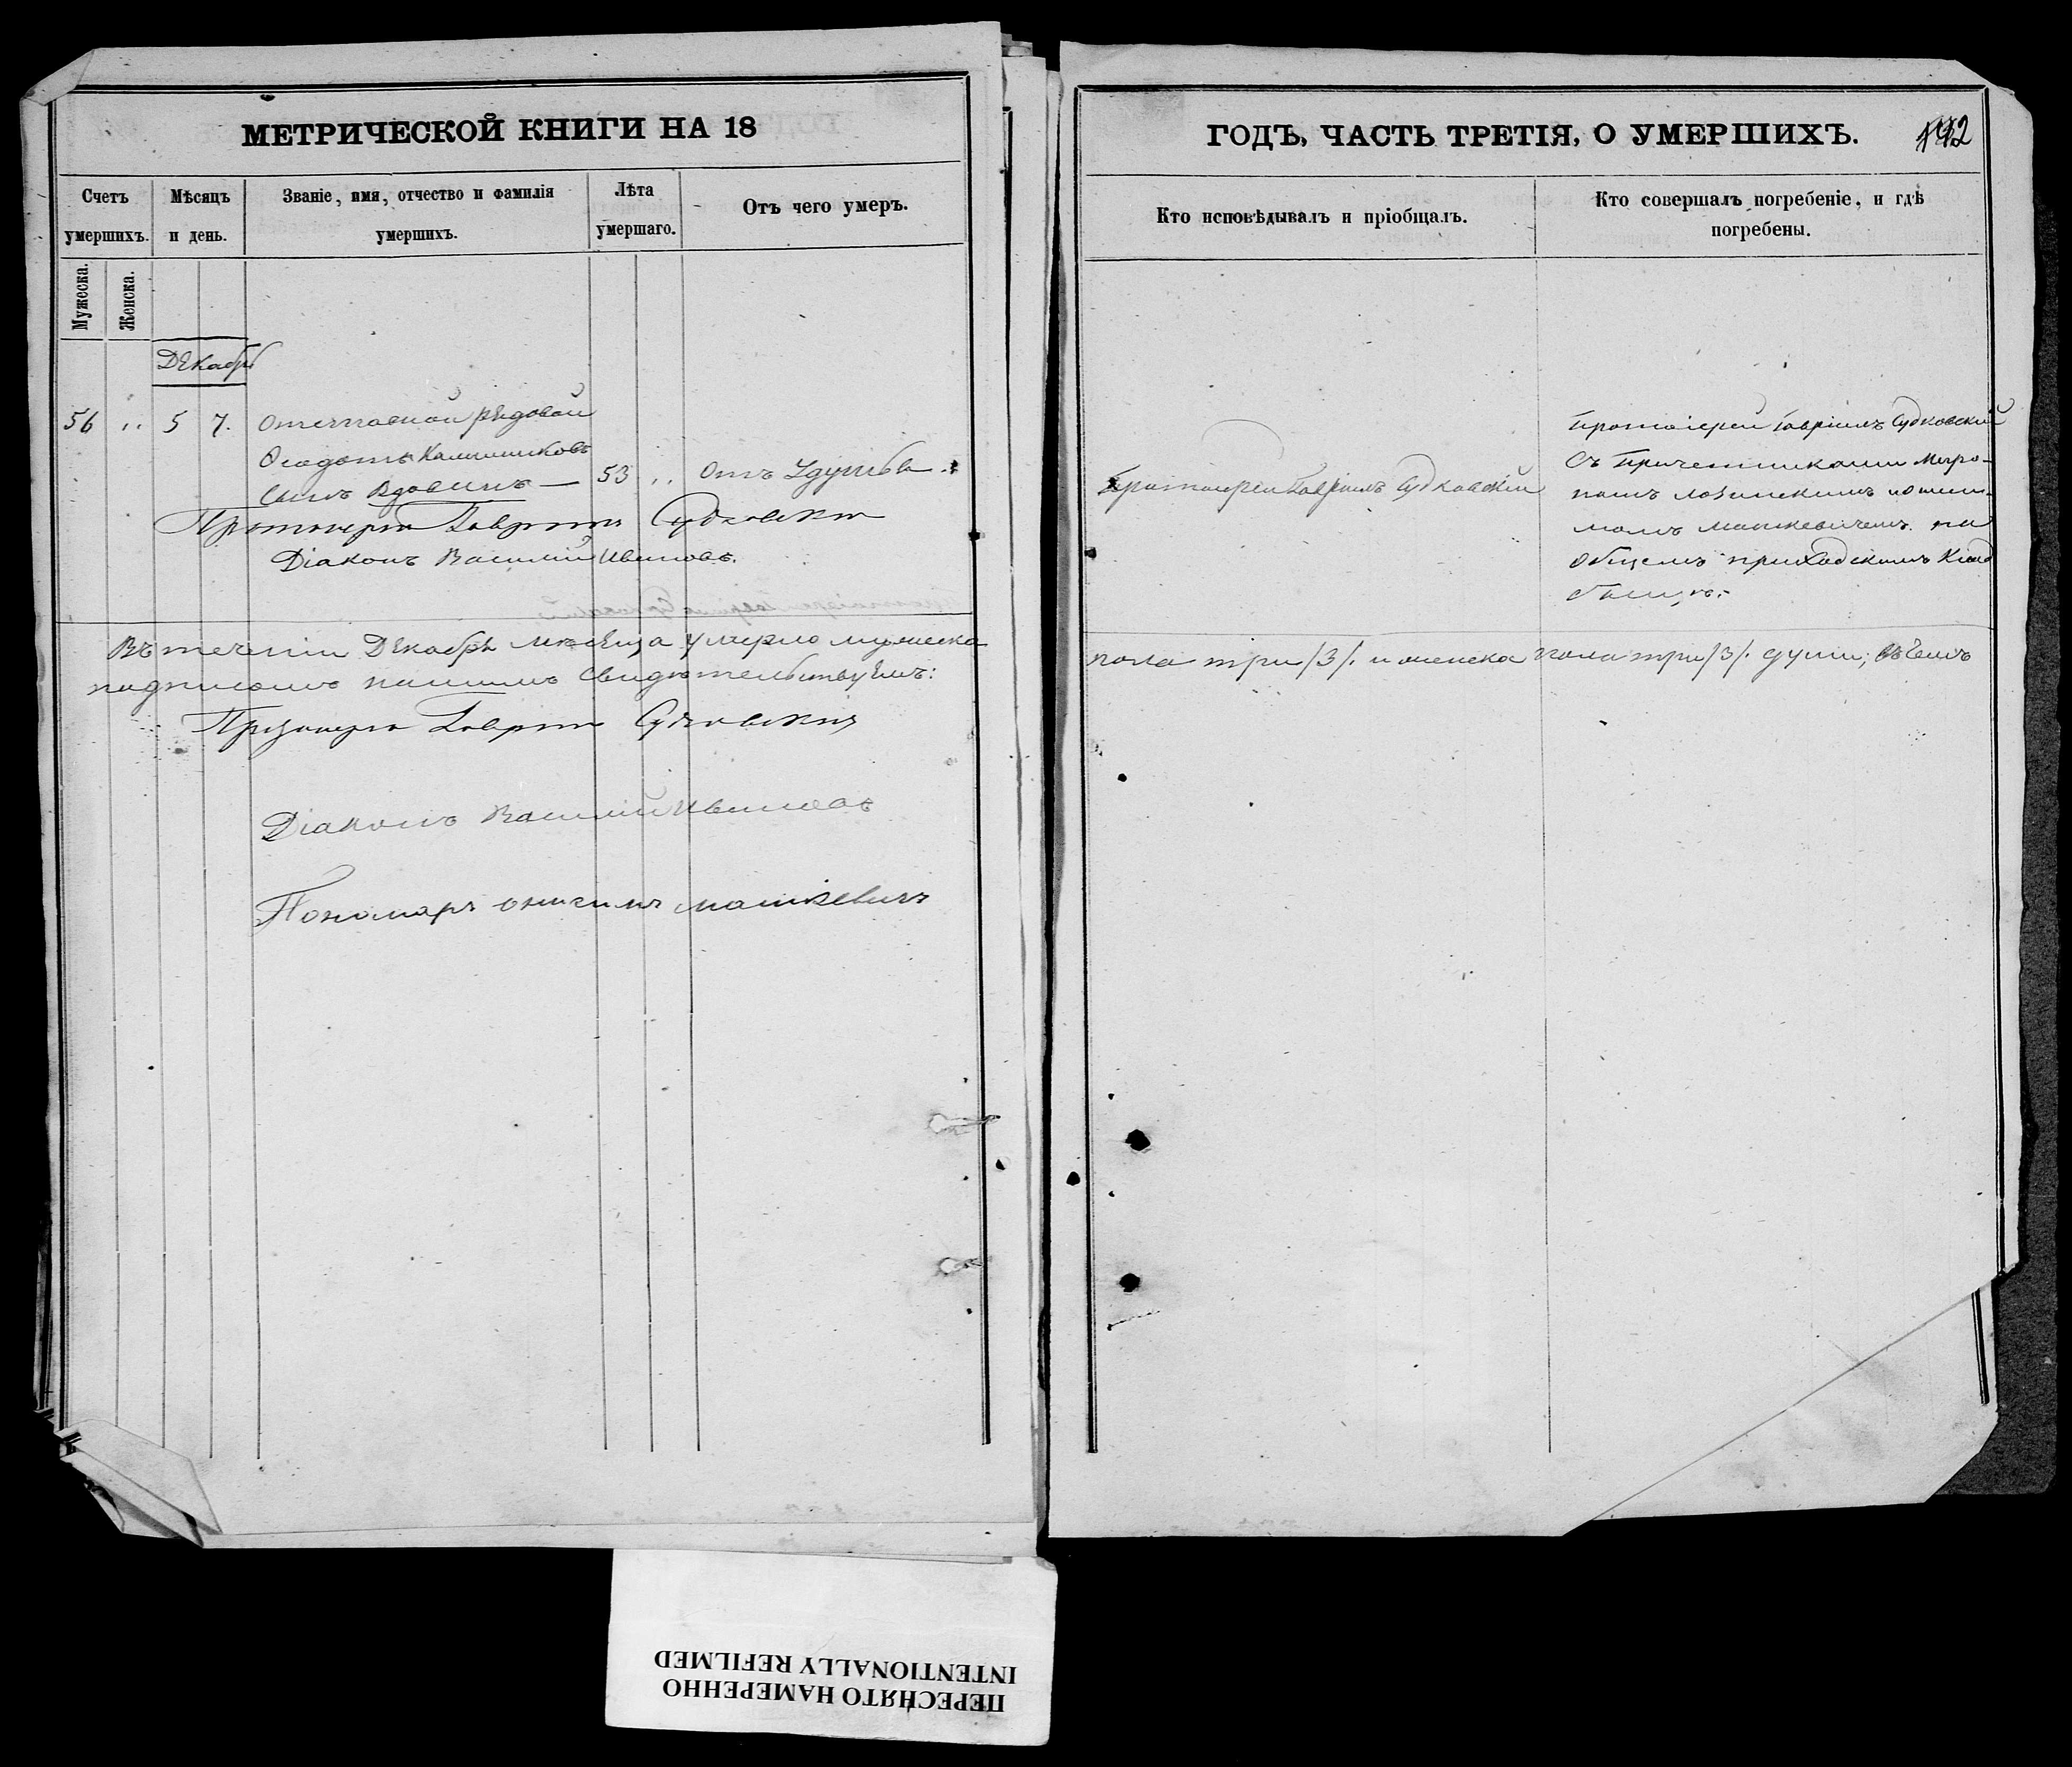 МЕТРИЧЕСКОЙ КНИГИ НА 18
Счетъ умершихъ.
Мѣсяцъ и день.
Званіе, имя, отчество и фамилія умершихъ.
Лѣта умершаго.
Отъ чего умеръ.
Мужеска.
Женска.
Декабрь
56 " 5 7. Отставной рядовой
Калашниковъ
сынъ Вдовинъ — 53 " Отъ удушья.
Протоіерей Гавріилъ Судковскій
Діаконъ Василій Ивановъ.
Въ теченіи Декабря мѣсяца умерло мужеска
подписомъ нашимъ свидѣтельствуемъ:
Протоіерей Гавріилъ Судковскій
Діаконъ Василій Ивановъ
Пономарь Онисимъ Машкевичъ
ГОДЪ, ЧАСТЬ ТРЕТІЯ, О УМЕРШИХЪ.
Кто исповѣдывалъ и пріобщалъ.
Кто совершалъ погребеніе, и гдѣ погребены.
Протоіерей Гавріилъ Судковскій
Протоіерей Гавріилъ Судковскій
съ Причетниками Миро-
номъ Лозинскимъ
Машкевичемъ на
общемъ приходскомъ клад
бищѣ.
пола три /3/. и женска пола три /3/. души; въ чемъ
ПЕРЕСНЯТО НАМЕРЕННО
INTENTIONALLY REFILMED